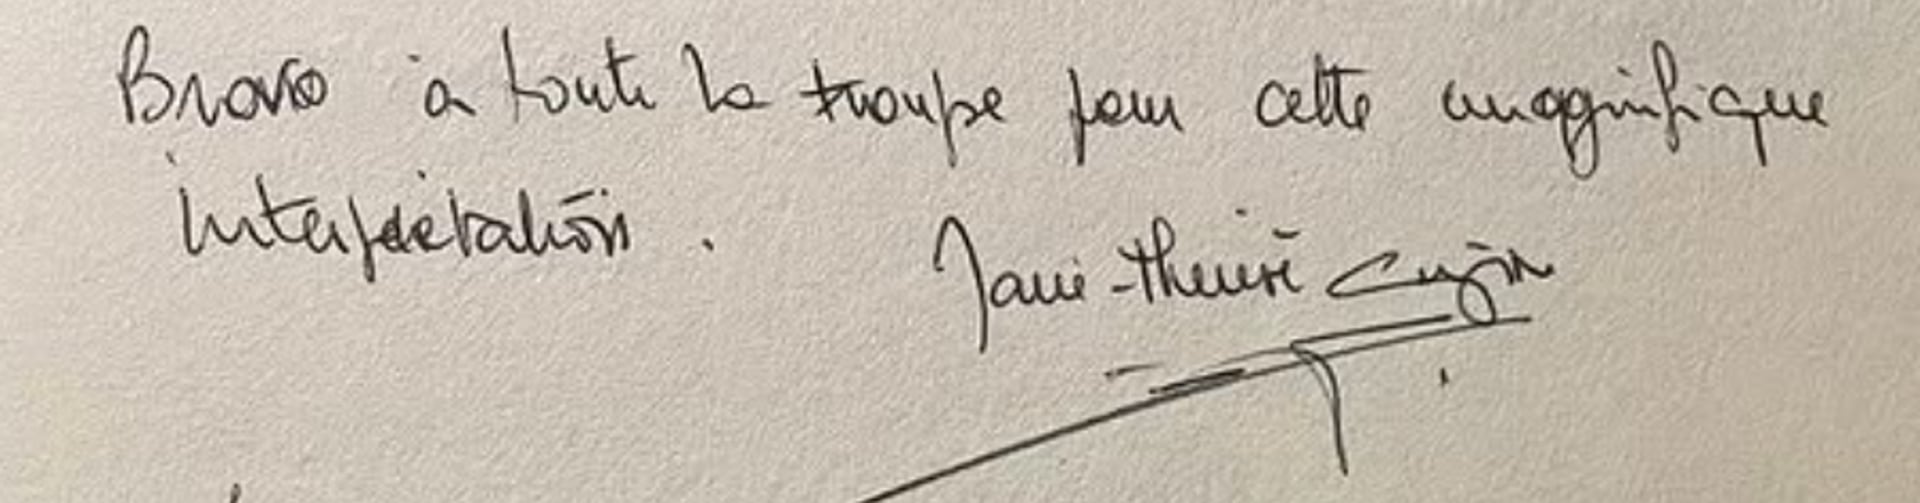 Bravo à toute la troupe pour cette magnifique
interprétation.
Marie-Thérèse